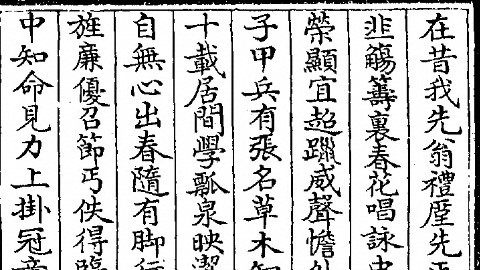 在昔我先翁禮歷先正
韭觴籌裏春花唱詠中
榮顯宜超躐威聲憺外
子甲兵有張名草木知
十載居閒學瓢泉映潔
自無心出春隨有脚行
旌廉優召節丐佚得臨
中知命見力上掛冠章